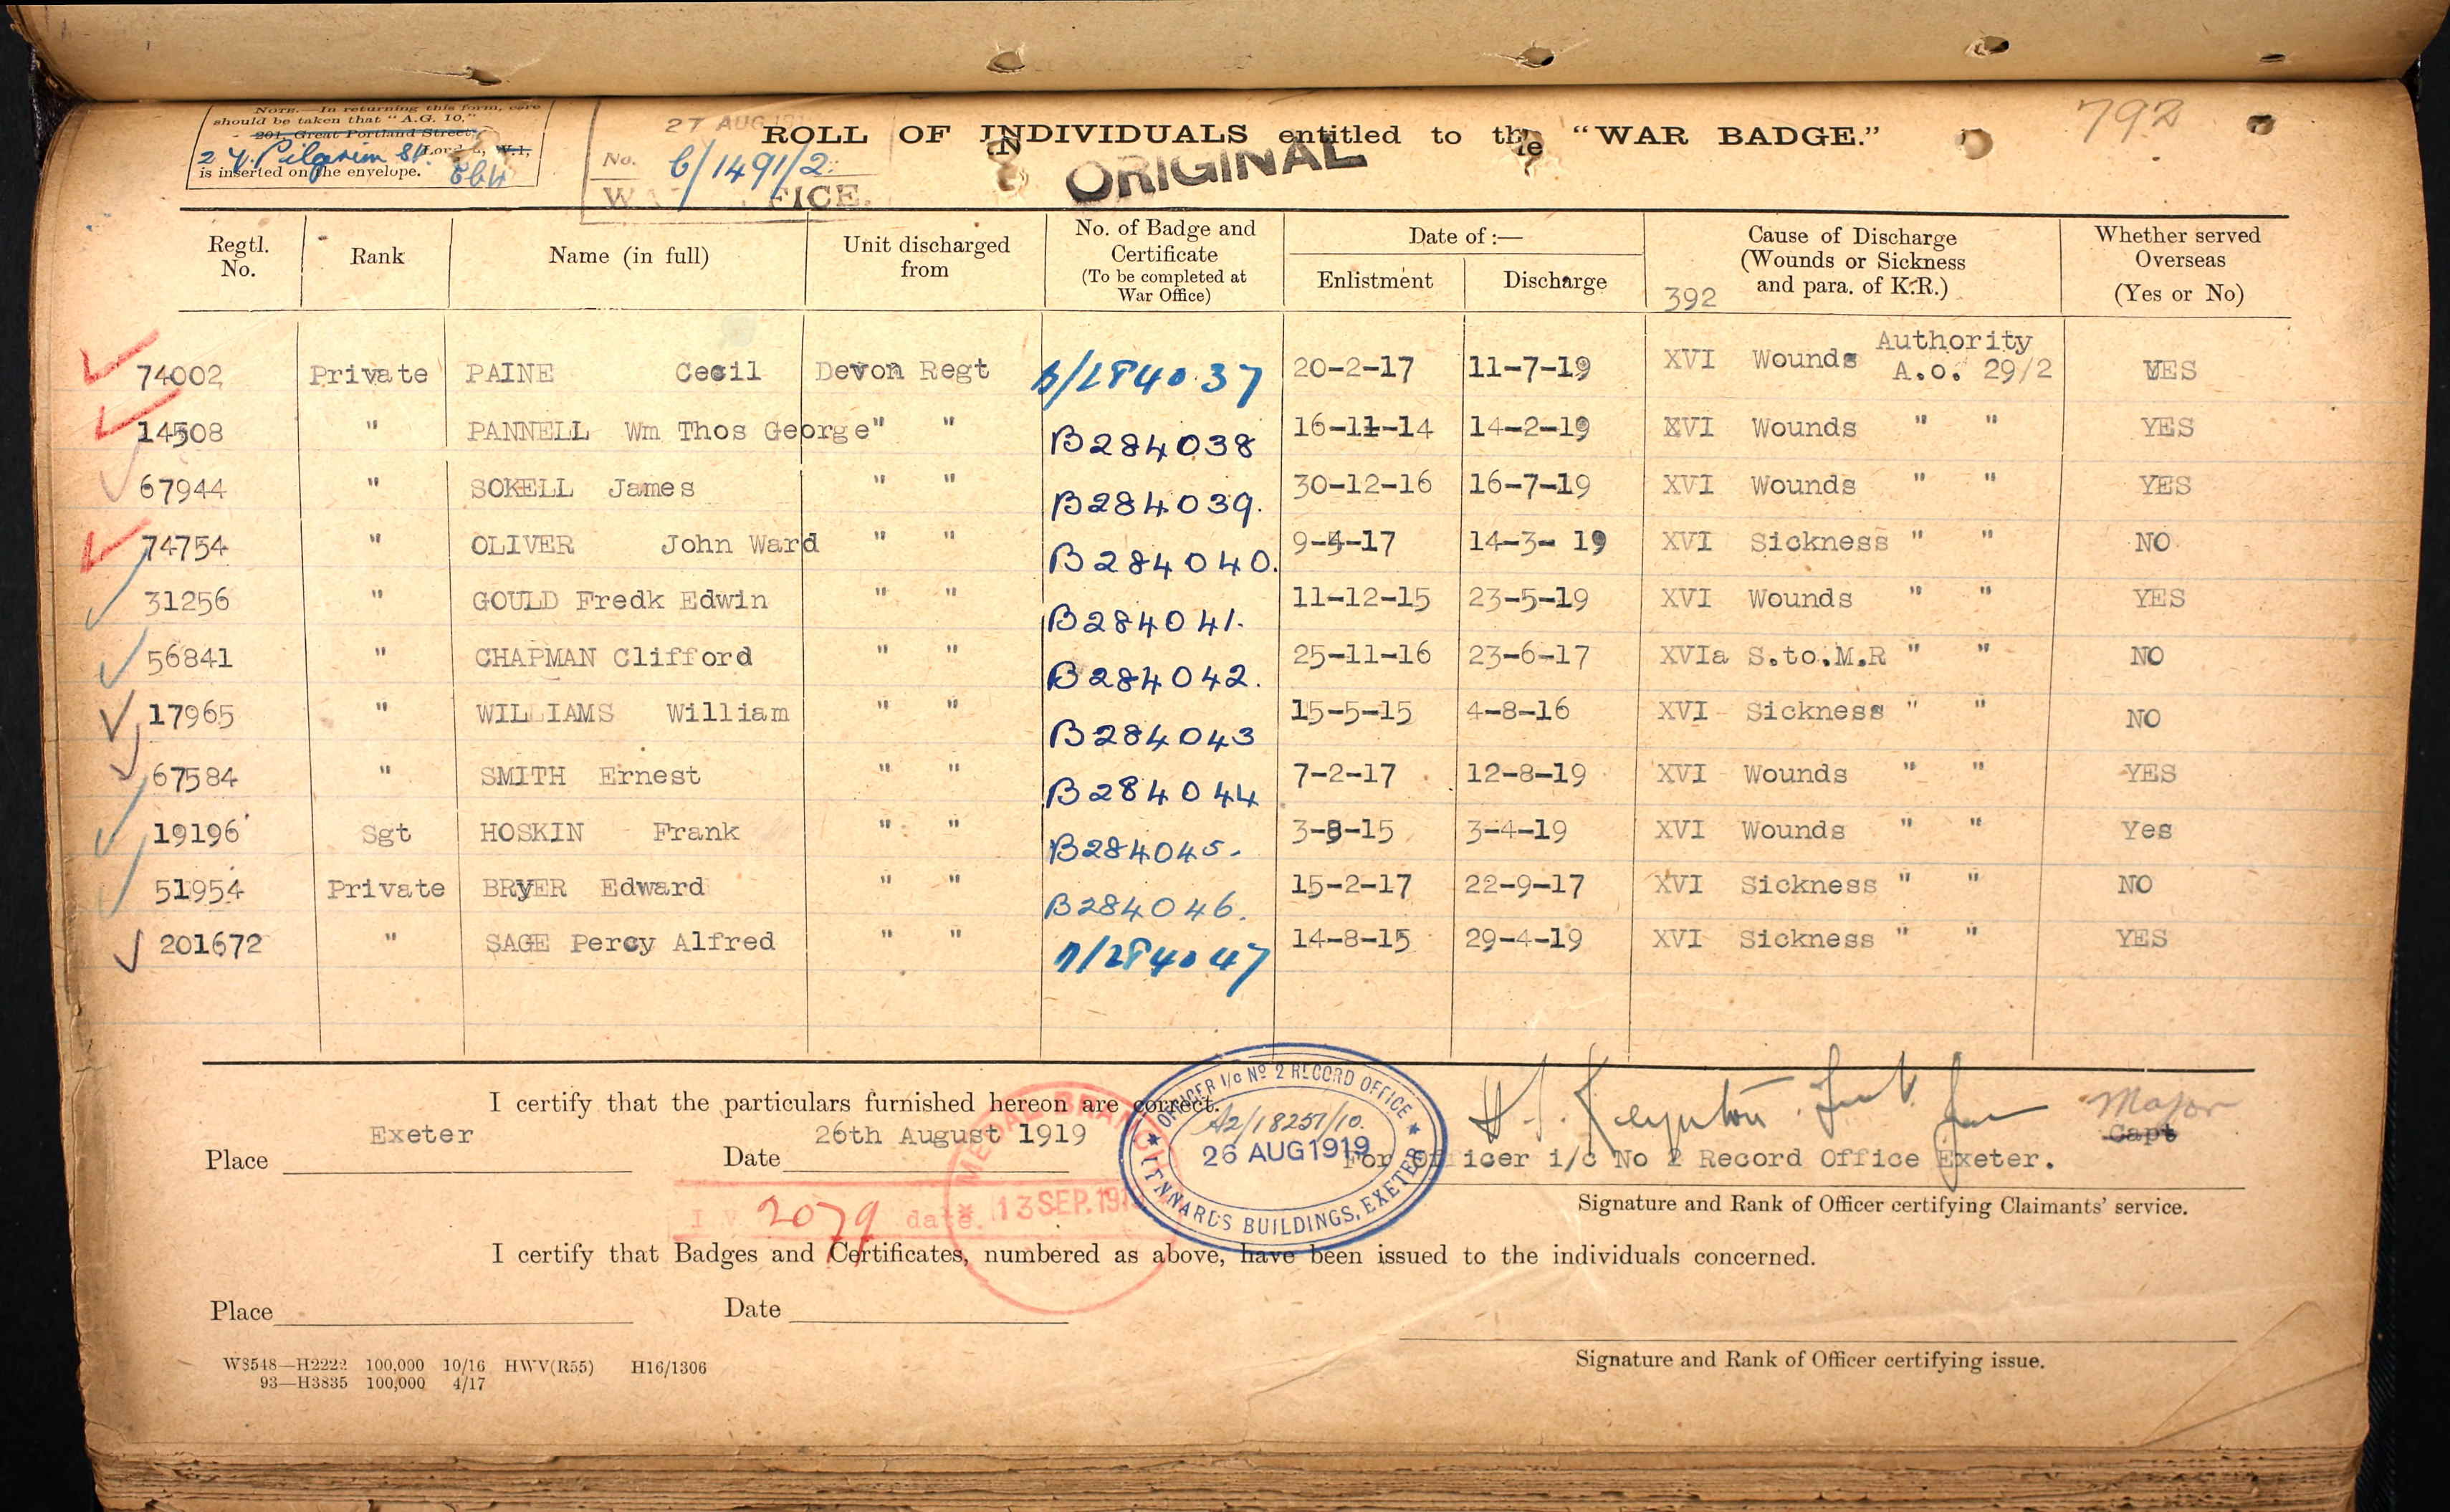 NOTE.—In returning this form, care
should be taken that "A.G. 10,"
201, Great Portland Street,
27 Pilgrim St. W.1,
is inserted on the envelope. EC4
27 AUG
No. 6/1491/2
ROLL OF INDIVIDUALS entitled to the "WAR BADGE."
ORIGINAL
792
Regtl. No. Rank Name (in full) Unit discharged from No. of Badge and Certificate (To be completed at War Office) Date of :— Enlistment Discharge 392 Cause of Discharge (Wounds or Sickness and para. of K.R.) Whether served Overseas (Yes or No)
Authority
74002 Private PAINE Cecil Devon Regt B/284037 20-2-17 11-7-19 XVI Wounds A.O. 29/2 YES
14508 " PANNELL Wm Thos George " " B284038 16-11-14 14-2-19 XVI Wounds " " YES
67944 " SOKELL James " " B284039. 30-12-16 16-7-19 XVI Wounds " " YES
74754 " OLIVER John Ward " " B284040. 9-4-17 14-3-19 XVI Sickness " " NO
31256 " GOULD Fredk Edwin " " B284041. 11-12-15 23-5-19 XVI Wounds " " YES
56841 " CHAPMAN Clifford " " B284042. 25-11-16 23-6-17 XVIa S.to.M.R " " NO
17965 " WILLIAMS William " " B284043 15-5-15 4-8-16 XVI Sickness " " NO
67584 " SMITH Ernest " " B284044 7-2-17 12-8-19 XVI Wounds " " YES
19196 Sgt HOSKIN Frank " " B284045. 3-8-15 3-4-19 XVI Wounds " " Yes
51954 Private BRYER Edward " " B284046. 15-2-17 22-9-17 XVI Sickness " " NO
201672 " SAGE Percy Alfred " " B/284047 14-8-15 29-4-19 XVI Sickness " " YES
I certify that the particulars furnished hereon are correct.
Place Exeter Date 26th August 1919
OFFICER I/c No 2 RECORD OFFICE
A2/18251/10.
26 AUG 1919
BUILDINGS, EXETER
Major
Capt
For Officer i/c No 2 Record Office Exeter.
Signature and Rank of Officer certifying Claimants' service.
MEDAL BRANCH
2079 date 13 SEP. 191
I certify that Badges and Certificates, numbered as above, have been issued to the individuals concerned.
Place Date
Signature and Rank of Officer certifying issue.
W8548—H2222 100,000 10/16 HWV(R55) H16/1306
93—H3835 100,000 4/17